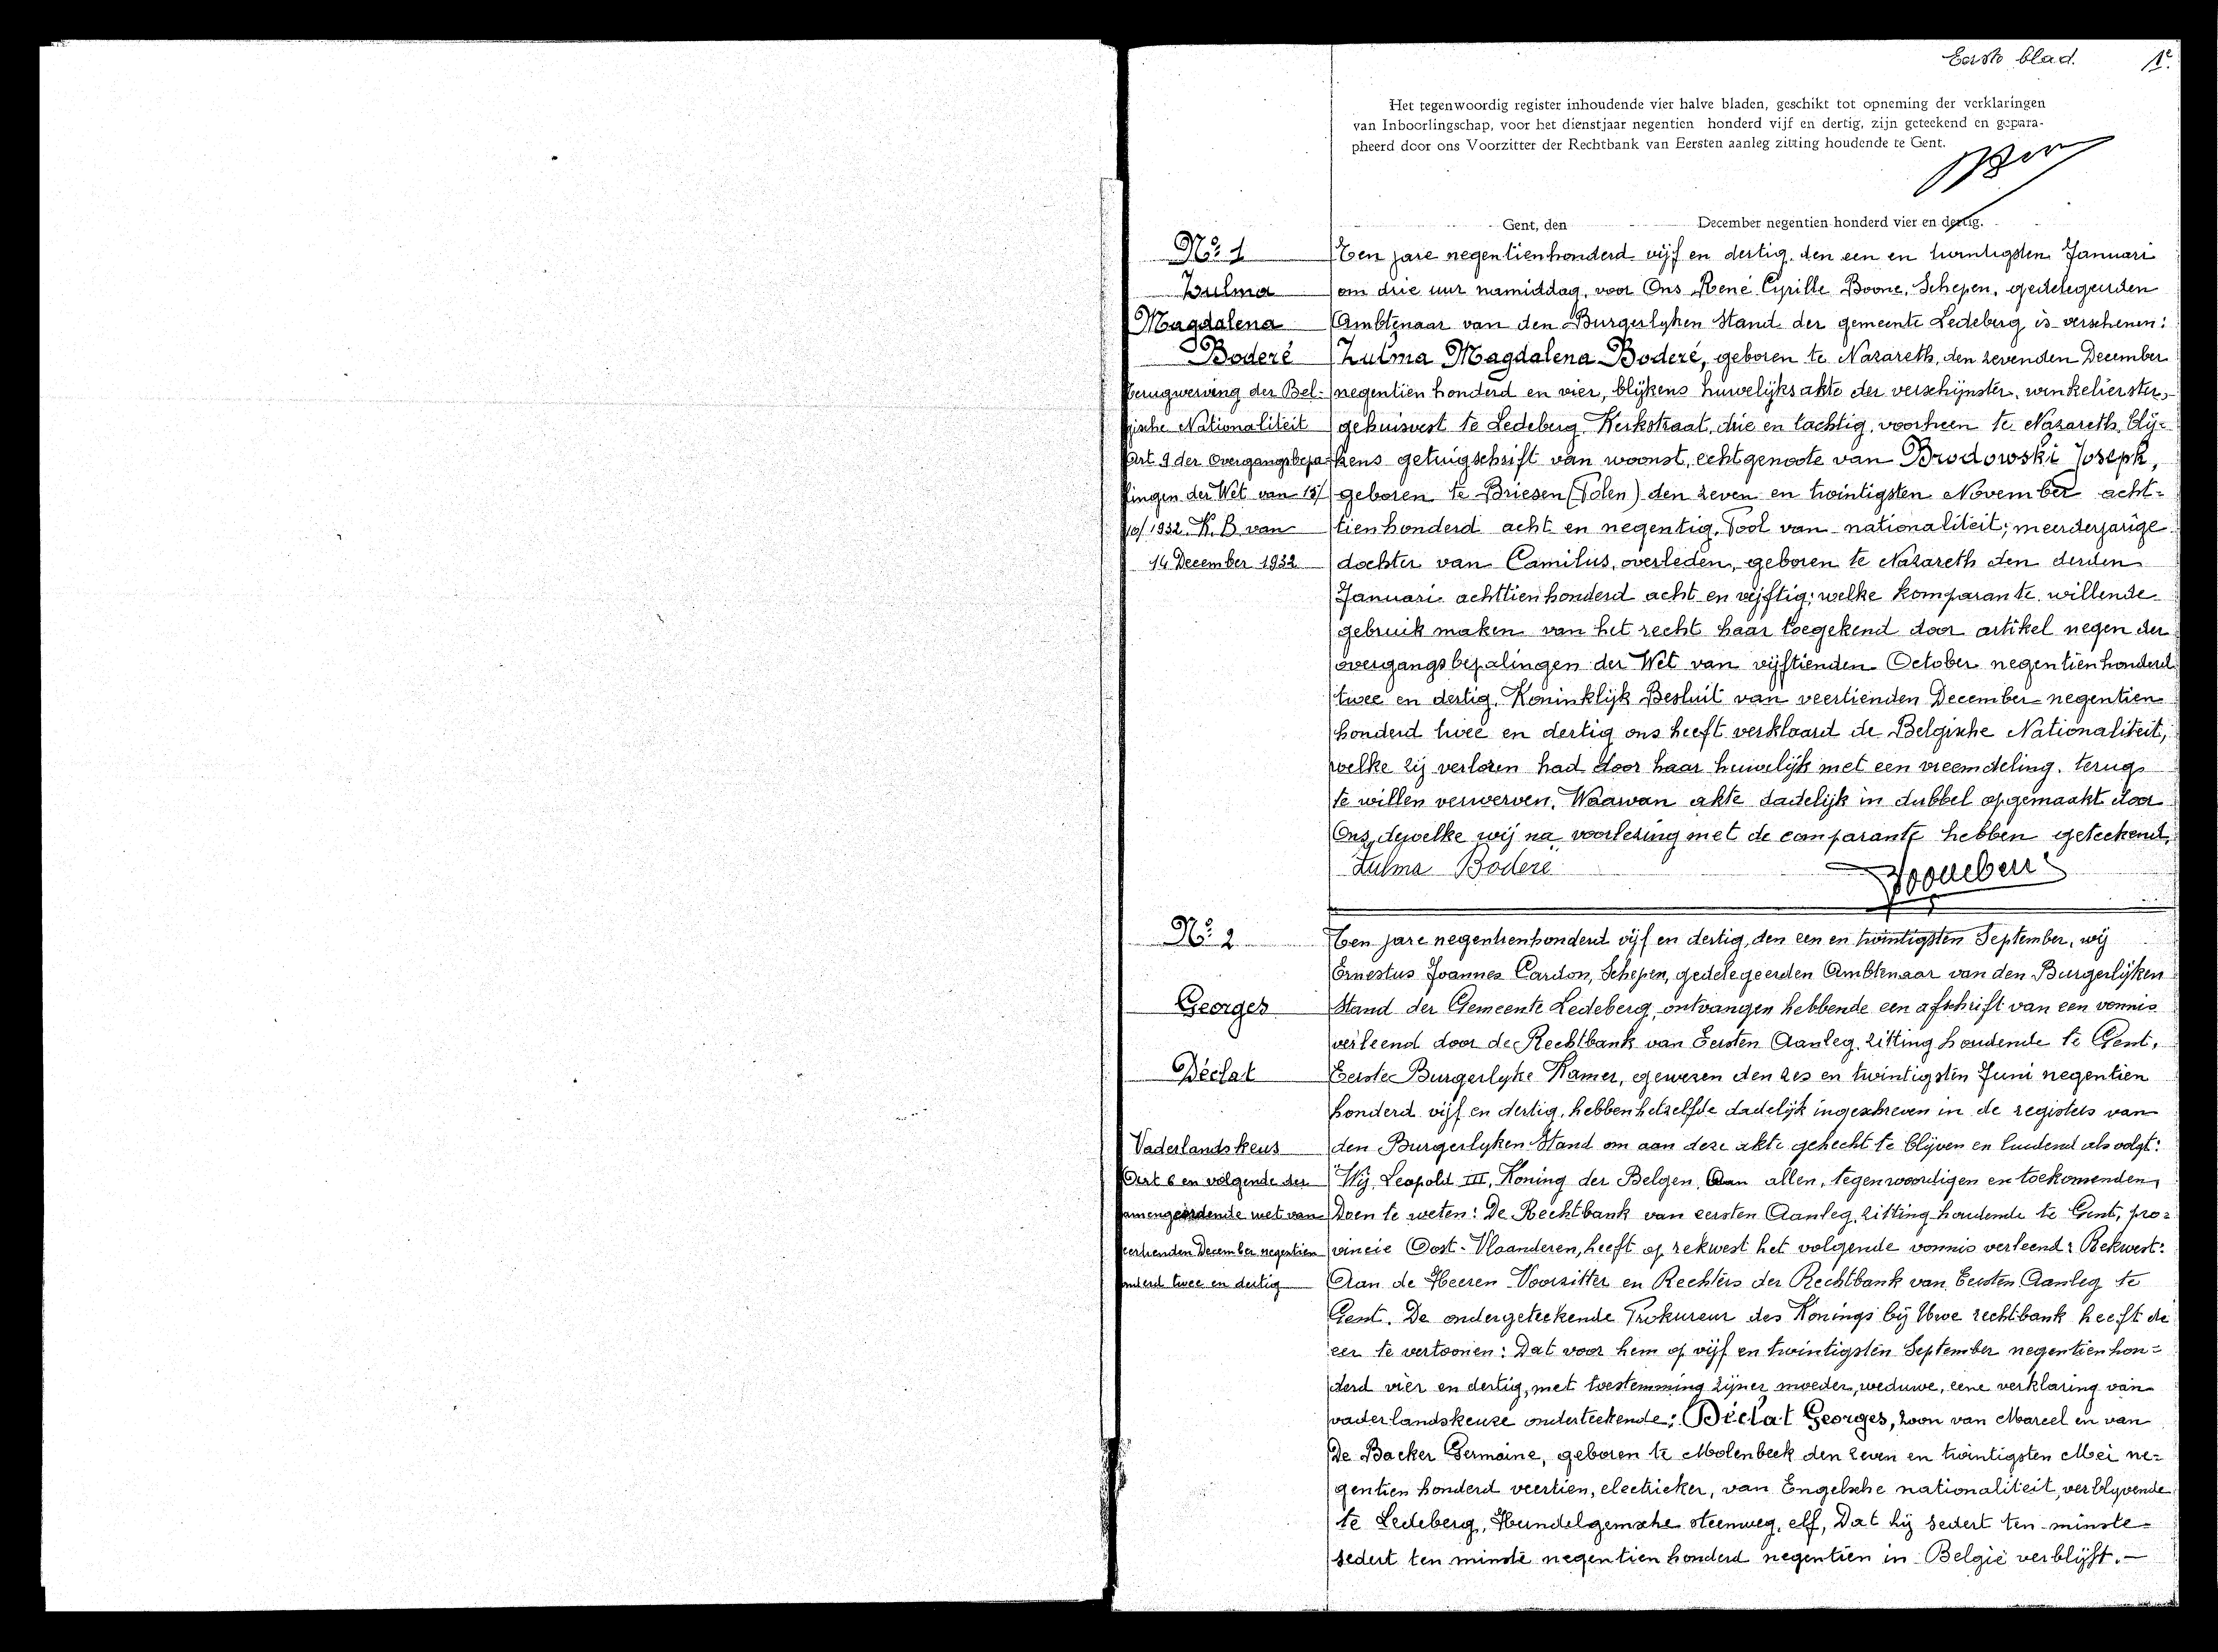 Eerste blad. 1e
Het tegenwoordig register inhoudende vier halve bladen, geschikt tot opneming der verklaringen
van Inboorlingschap, voor het dienstjaar negentien honderd vijf en dertig, zijn geteekend en gepara-
pheerd door ons Voorzitter der Rechtbank van Eersten aanleg zitting houdende te Gent.
Gent, den December negentien honderd vier en dertig.
No. 1
Zulma
Magdalena
Boderé
terugwerving der Bel-
gische Nationaliteit
Art 9 der Overgangsbepa-
lingen der Wet van 15/
10/1932. K.B. van
14 December 1932
Ten jare negentienhonderd vijf en dertig, den een en twintigsten Januari
om drie uur namiddag, voor Ons René Cyrille Boone, Schepen, gedelegeerden
Ambtenaar van den Burgerlyken Stand der gemeente Ledeberg is verschenen:
Zulma Magdalena Boderé, geboren te Nazareth, den zevenden December
negentien honderd en vier, blijkens huwelijksakte der verschijnster, winkelierster,
gehuisvest te Ledeberg, Kerkstraat, drie en tachtig, voorheen te Nazareth, blij-
kens getuigschrift van woonst, echtgenoote van Brodowski Joseph,
geboren te Briesen (Polen) den zeven en twintigsten November acht-
tien honderd acht en negentig, Pool van nationaliteit; meerderjarige
dochter van Camilus, overleden, geboren te Nazareth den derden
Januari achttien honderd acht en vijftig; welke komparante willende
gebruik maken van het recht haar toegekend door artikel negen der
overgangsbepalingen der Wet van vijftienden October negentien honderd
twee en dertig, Koninklijk Besluit van veertienden December negentien
honderd twee en dertig ons heeft verklaard de Belgische Nationaliteit,
welke zij verloren had door haar huwelijk met een vreemdeling, terug
te willen verwerven. Waarvan akte dadelijk in dubbel opgemaakt door
Ons, dewelke wij na voorlezing met de comparante hebben geteekend.
Zulma Boderé
No. 2
Georges
Déclat
Vaderlandskeus
Art 6 en volgende der
samengeordende wet van
veertienden December negentien
honderd twee en dertig
Ten jare negentienhonderd vijf en dertig, den een en twintigsten September, wij
Ernestus Joannes Cardon, Schepen, gedelegeerden Ambtenaar van den Burgerlijken
Stand der Gemeente Ledeberg, ontvangen hebbende een afschrift van een vonnis
verleend door de Rechtbank van Eersten Aanleg, zitting houdende te Gent,
Eerste Burgerlyke Kamer, gewezen den zes en twintigsten Juni negentien
honderd vijf en dertig, hebben hetzelfde dadelijk ingeschreven in de registers van
den Burgerlyken Stand om aan deze akte gehecht te blijven en luidend als volgt:
"Wij, Leopold III, Koning der Belgen, Aan allen, tegenwoordigen en toekomenden,
Doen te weten: De Rechtbank van eersten Aanleg, zitting houdende te Gent, pro-
vincie Oost-Vlaanderen, heeft op rekwest het volgende vonnis verleend: Rekwest:
Aan de Heeren Voorzitter en Rechters der Rechtbank van Eersten Aanleg te
Gent. De ondergeteekende Prokureur des Konings bij Uwe rechtbank heeft de
eer te vertoonen: Dat voor hem op vijf en twintigsten September negentien hon-
derd vier en dertig, met toestemming zijner moeder, weduwe, eene verklaring van
vaderlandskeuze onderteekende: Déclat Georges, zoon van Marcel en van
De Backer Germaine, geboren te Molenbeek den zeven en twintigsten Mei ne-
gentien honderd veertien, electrieker, van Engelsche nationaliteit, verblyvende
te Ledeberg, Hundelgemsche steenweg, elf, Dat hij sedert ten minste
sedert ten minste negentien honderd negentien in België verblijft.—